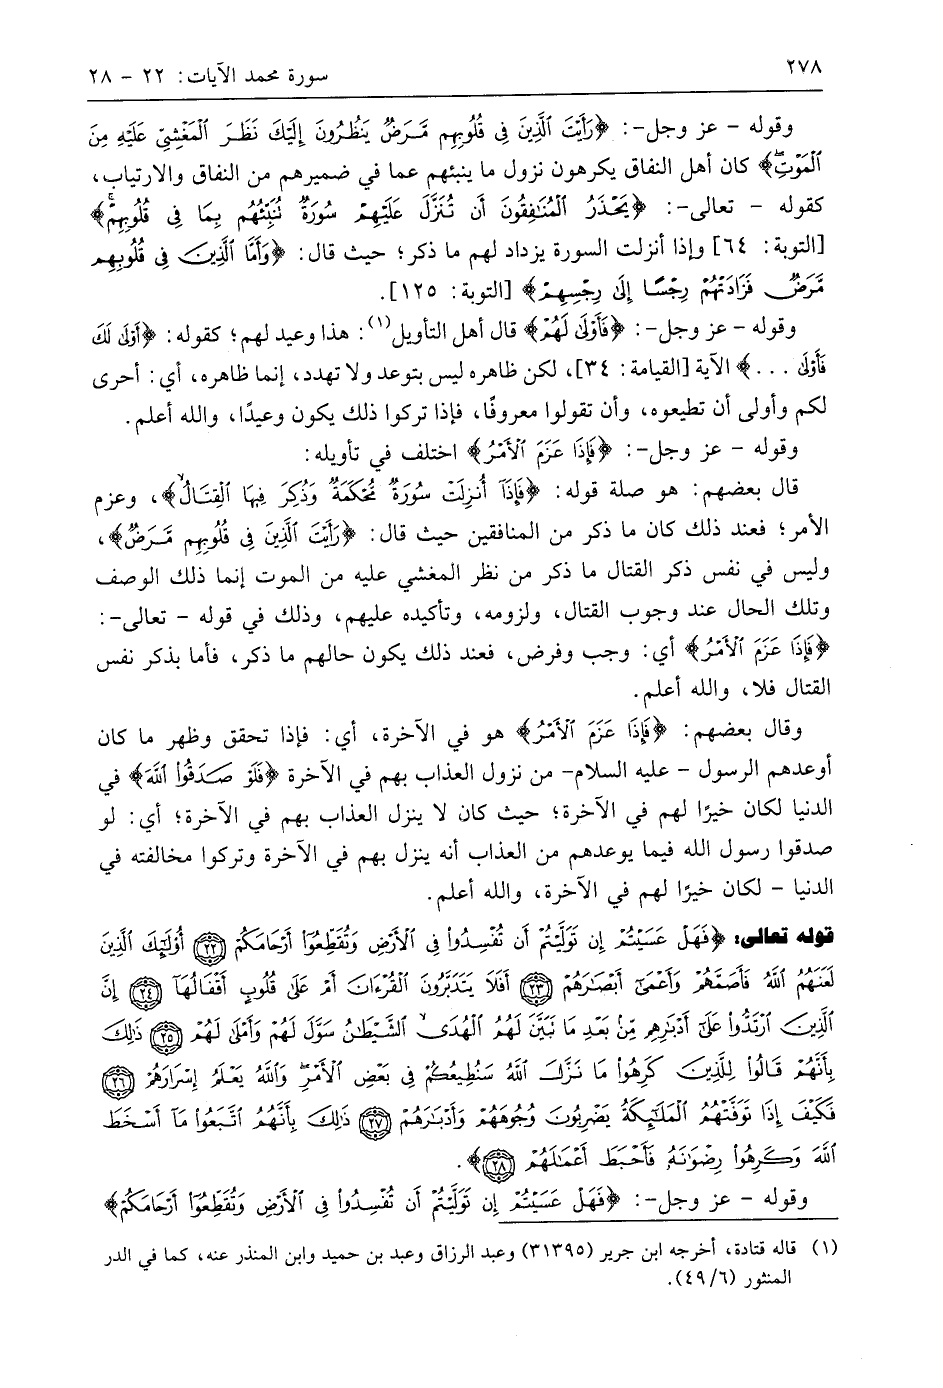 ٢٧٨
سورة محمد الآيات: ٢٢ - ٢٨
وقوله - عز وجل-: ﴿رَأَيْتَ الَّذِينَ فِي قُلُوبِهِم مَّرَضٌ يَنظُرُونَ إِلَيْكَ نَظَرَ الْمَغْشِيِّ عَلَيْهِ مِنَ
الْمَوْتِ﴾ كان أهل النفاق يكرهون نزول ما ينبئهم عما في ضميرهم من النفاق والارتياب،
كقوله - تعالى-: ﴿يَحْذَرُ الْمُنَافِقُونَ أَن تُنَزَّلَ عَلَيْهِمْ سُورَةٌ تُنَبِّئُهُم بِمَا فِي قُلُوبِهِمْ﴾
[التوبة: ٦٤] وإذا أنزلت السورة يزداد لهم ما ذكر؛ حيث قال: ﴿وَأَمَّا الَّذِينَ فِي قُلُوبِهِم
مَّرَضٌ فَزَادَتْهُمْ رِجْسًا إِلَى رِجْسِهِمْ﴾ [التوبة: ١٢٥].
وقوله - عز وجل-: ﴿فَأَوْلَى لَهُمْ﴾ قال أهل التأويل(١): هذا وعيد لهم؛ كقوله: ﴿أَوْلَى لَكَ
فَأَوْلَى ...﴾ الآية [القيامة: ٣٤]، لكن ظاهره ليس بتوعد ولا تهدد، إنما ظاهره، أي: أحرى
لكم وأولى أن تطيعوه، وأن تقولوا معروفًا، فإذا تركوا ذلك يكون وعيدًا، والله أعلم.
وقوله - عز وجل-: ﴿فَإِذَا عَزَمَ الْأَمْرُ﴾ اختلف في تأويله:
قال بعضهم: هو صلة قوله: ﴿فَإِذَا أُنزِلَتْ سُورَةٌ مُّحْكَمَةٌ وَذُكِرَ فِيهَا الْقِتَالُ﴾، وعزم
الأمر؛ فعند ذلك كان ما ذكر من المنافقين حيث قال: ﴿رَأَيْتَ الَّذِينَ فِي قُلُوبِهِم مَّرَضٌ﴾،
وليس في نفس ذكر القتال ما ذكر من نظر المغشي عليه من الموت إنما ذلك الوصف
وتلك الحال عند وجوب القتال، ولزومه، وتأكيده عليهم، وذلك في قوله - تعالى-:
﴿فَإِذَا عَزَمَ الْأَمْرُ﴾ أي: وجب وفرض، فعند ذلك يكون حالهم ما ذكر، فأما بذكر نفس
القتال فلا، والله أعلم.
وقال بعضهم: ﴿فَإِذَا عَزَمَ الْأَمْرُ﴾ هو في الآخرة، أي: فإذا تحقق وظهر ما كان
أوعدهم الرسول - عليه السلام- من نزول العذاب بهم في الآخرة ﴿فَلَوْ صَدَقُوا اللَّهَ﴾ في
الدنيا لكان خيرًا لهم في الآخرة؛ حيث كان لا ينزل العذاب بهم في الآخرة؛ أي: لو
صدقوا رسول الله فيما يوعدهم من العذاب أنه ينزل بهم في الآخرة وتركوا مخالفته في
الدنيا - لكان خيرًا لهم في الآخرة، والله أعلم.
قوله تعالى: ﴿فَهَلْ عَسَيْتُمْ إِن تَوَلَّيْتُمْ أَن تُفْسِدُوا فِي الْأَرْضِ وَتُقَطِّعُوا أَرْحَامَكُمْ ﴿٢٢﴾ أُوْلَٰئِكَ الَّذِينَ
لَعَنَهُمُ اللَّهُ فَأَصَمَّهُمْ وَأَعْمَىٰ أَبْصَارَهُمْ ﴿٢٣﴾ أَفَلَا يَتَدَبَّرُونَ الْقُرْءَانَ أَمْ عَلَىٰ قُلُوبٍ أَقْفَالُهَا ﴿٢٤﴾ إِنَّ
الَّذِينَ ارْتَدُّوا عَلَىٰ أَدْبَارِهِم مِّنۢ بَعْدِ مَا تَبَيَّنَ لَهُمُ الْهُدَى الشَّيْطَانُ سَوَّلَ لَهُمْ وَأَمْلَىٰ لَهُمْ ﴿٢٥﴾ ذَٰلِكَ
بِأَنَّهُمْ قَالُوا لِلَّذِينَ كَرِهُوا مَا نَزَّلَ اللَّهُ سَنُطِيعُكُمْ فِي بَعْضِ الْأَمْرِ وَاللَّهُ يَعْلَمُ إِسْرَارَهُمْ ﴿٢٦﴾
فَكَيْفَ إِذَا تَوَفَّتْهُمُ الْمَلَٰئِكَةُ يَضْرِبُونَ وُجُوهَهُمْ وَأَدْبَارَهُمْ ﴿٢٧﴾ ذَٰلِكَ بِأَنَّهُمُ اتَّبَعُوا مَا أَسْخَطَ
اللَّهَ وَكَرِهُوا رِضْوَانَهُ فَأَحْبَطَ أَعْمَالَهُمْ ﴿٢٨﴾﴾.
وقوله - عز وجل-: ﴿فَهَلْ عَسَيْتُمْ إِن تَوَلَّيْتُمْ أَن تُفْسِدُوا فِي الْأَرْضِ وَتُقَطِّعُوا أَرْحَامَكُمْ﴾
(١) قاله قتادة، أخرجه ابن جرير (٣١٣٩٥) وعبد الرزاق وعبد بن حميد وابن المنذر عنه، كما في الدر
المنثور (٤٩/٦).